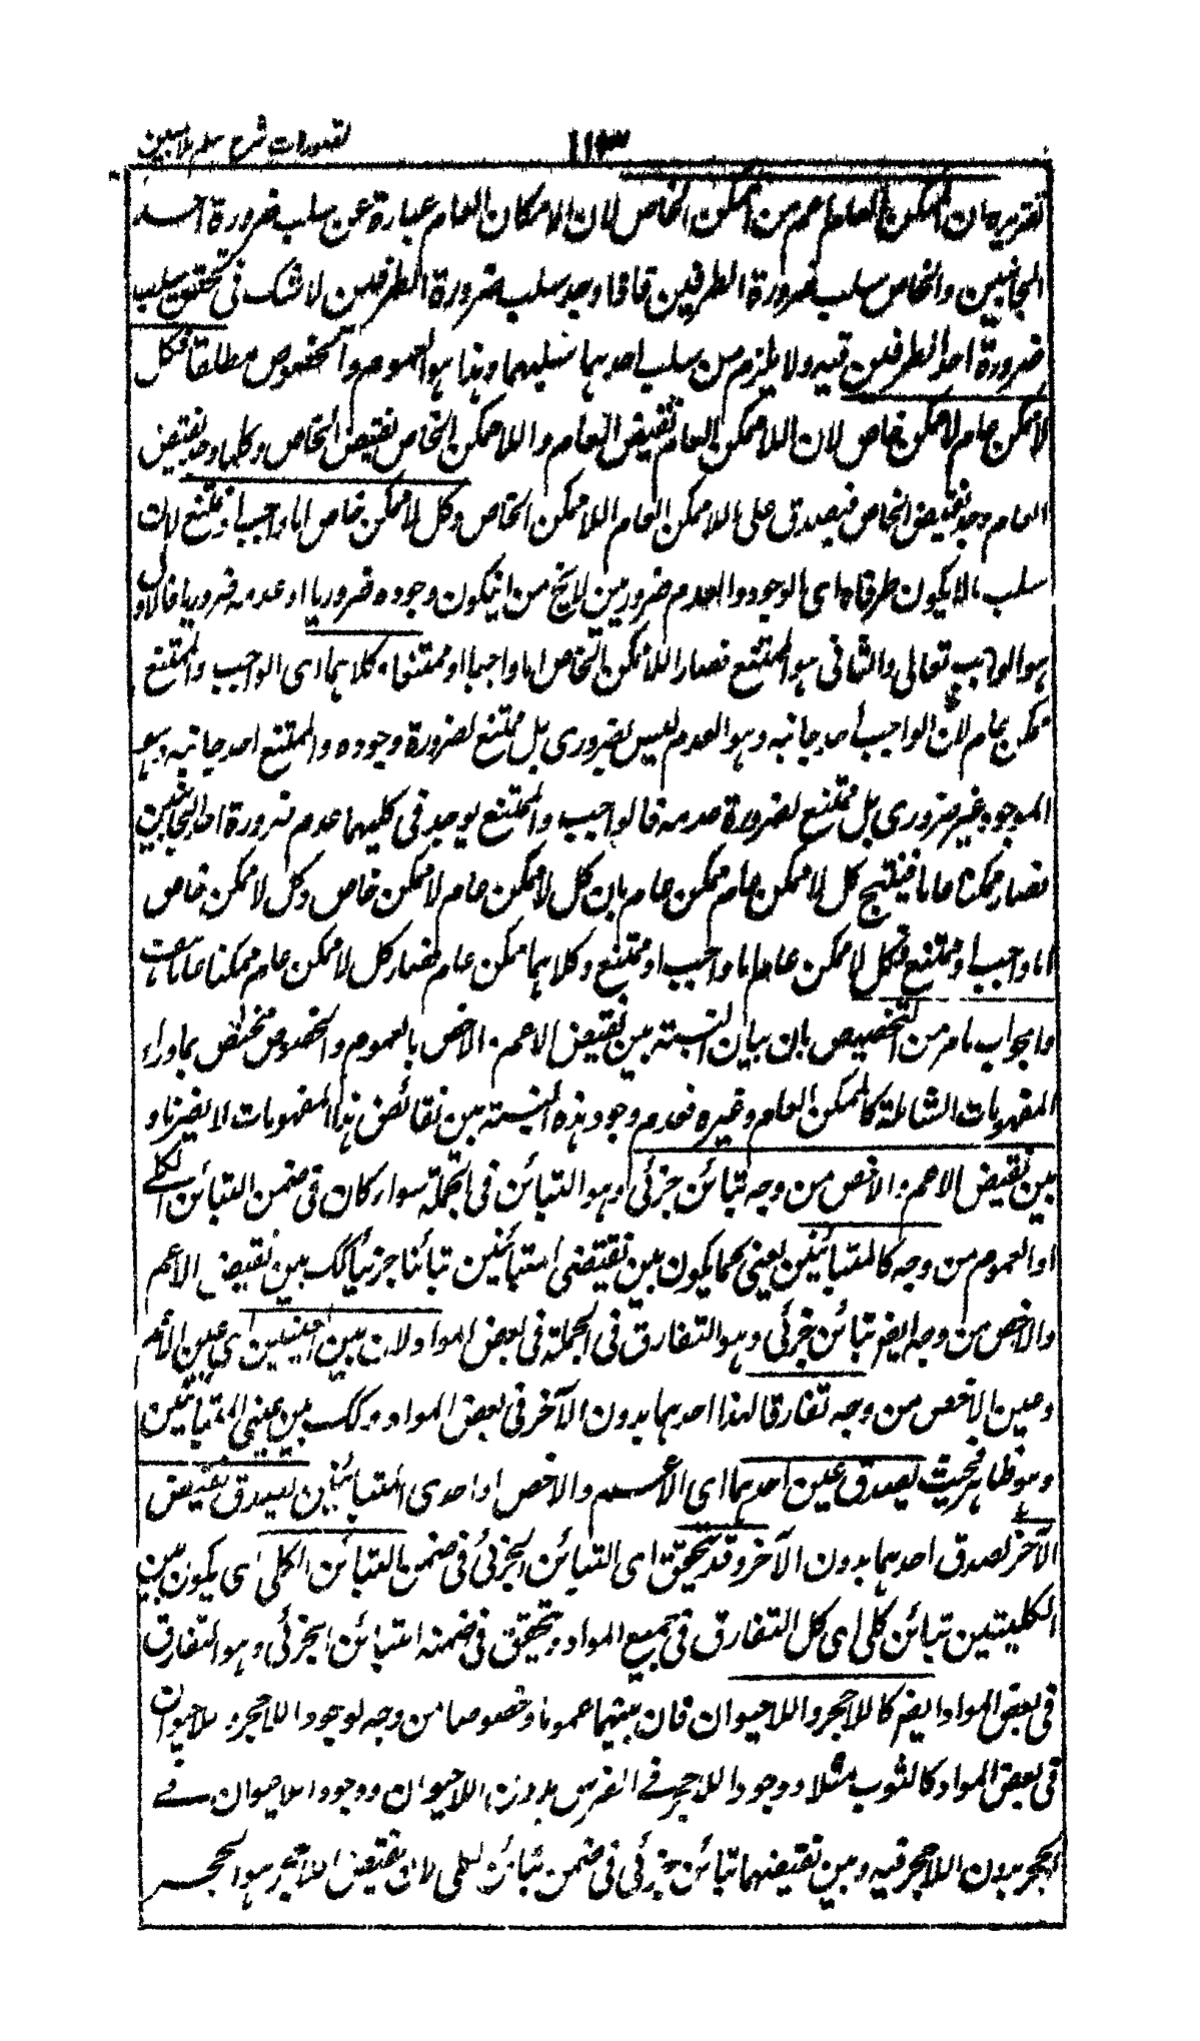 تصورات شرح سلم ملا مبین
۱۱۳
تقریره ان الممکن العام اعم من الممکن الخاص لان الامکان العام عبارة عن سلب ضرورة احد
الجانبین والخاص سلب ضرورة الطرفین فاذا وجد سلب ضرورة الطرفین لا شک فی تحقق سلب
ضرورة احد الطرفین فیه ولا یلزم من سلب احدهما سلبهما وهذا هو العموم والخصوص مطلقا فکل
لا ممکن عام لا ممکن خاص لان اللا ممکن العام نقیض العام واللا ممکن الخاص نقیض الخاص وکلما وجد نقیض
العام وجد نقیض الخاص فیصدق علی اللا ممکن العام اللا ممکن الخاص وکل لا ممکن خاص اما واجب او ممتنع لان
سلب ما لا یکون طرفاه ای الوجود والعدم ضروریین لا یخ من ان یکون وجوده ضروریا او عدمه ضروریا فالاول
هو الواجب تعالی والثانی هو الممتنع فصار اللا ممکن الخاص اما واجبا او ممتنعا وکلاهما ای الواجب والممتنع
ممکن عام لان الواجب احد جانبیه وهو العدم لیس بضروری بل ممتنع لضرورة وجوده والممتنع احد جانبیه وهو
الموجود غیر ضروری بل ممتنع لضرورة عدمه فالواجب والممتنع یوجد فی کلیهما عدم ضرورة احد الجانبین
فصار ممکنا عاما فینتج کل لا ممکن عام ممکن عام بان کل لا ممکن عام لا ممکن خاص وکل لا ممکن خاص
اما واجب او ممتنع فکل لا ممکن عام اما واجب او ممتنع وکلاهما ممکن عام فصار کل لا ممکن عام ممکنا عاما هف
والجواب ما مر من التخصیص بان بیان النسبة بین نقیض الاعم والاخص بالعموم والخصوص مختص بما وراء
المفهومات الشاملة کالممکن العام وغیره فعدم وجود هذه النسبة بین نقائض هذا المفهومات لا یضرنا و
بین نقیض الاعم والاخص من وجه تبائن جزئی وهو التبائن فی الجملة سواء کان فی ضمن التبائن الکلی
او العموم من وجه کالمتبائنین یعنی کما یکون بین نقیضی المتبائنین تبائنا جزئیا کک بین نقیض الاعم
والاخص من وجه ایض تبائن جزئی وهو التفارق فی الجملة فی بعض المواد لان بین العینین ای عین الاعم
وعین الاخص من وجه تفارقا لهذا احدهما بدون الآخر فی بعض المواد وکک بین عینی المتبائنین
وهو ظاهر فحیث یصدق عین احدهما ای الاعم والاخص او احدی المتبائنین یصدق نقیض
الآخر لصدق احدهما بدون الآخر وقد یتحقق ای التبائن الجزئی فی ضمن التبائن الکلی ای یکون بین
الکلیتین تبائن کلی ای کل التفارق فی جمیع المواد وتحقق فی ضمنه التبائن الجزئی وهو التفارق
فی بعض المواد ایض کاللا حجر واللا حیوان فان بینهما عموما وخصوصا من وجه لوجود اللا حجر واللا حیوان
فی بعض المواد کالثوب مثلا ووجود اللا حجر فی الفرس بدون اللا حیوان ووجود اللا حیوان فی
الحجر بدون اللا حجر فیه وبین نقیضهما تبائن جزئی فی ضمن تبائن کلی لان نقیض اللا حجر هو الحجر